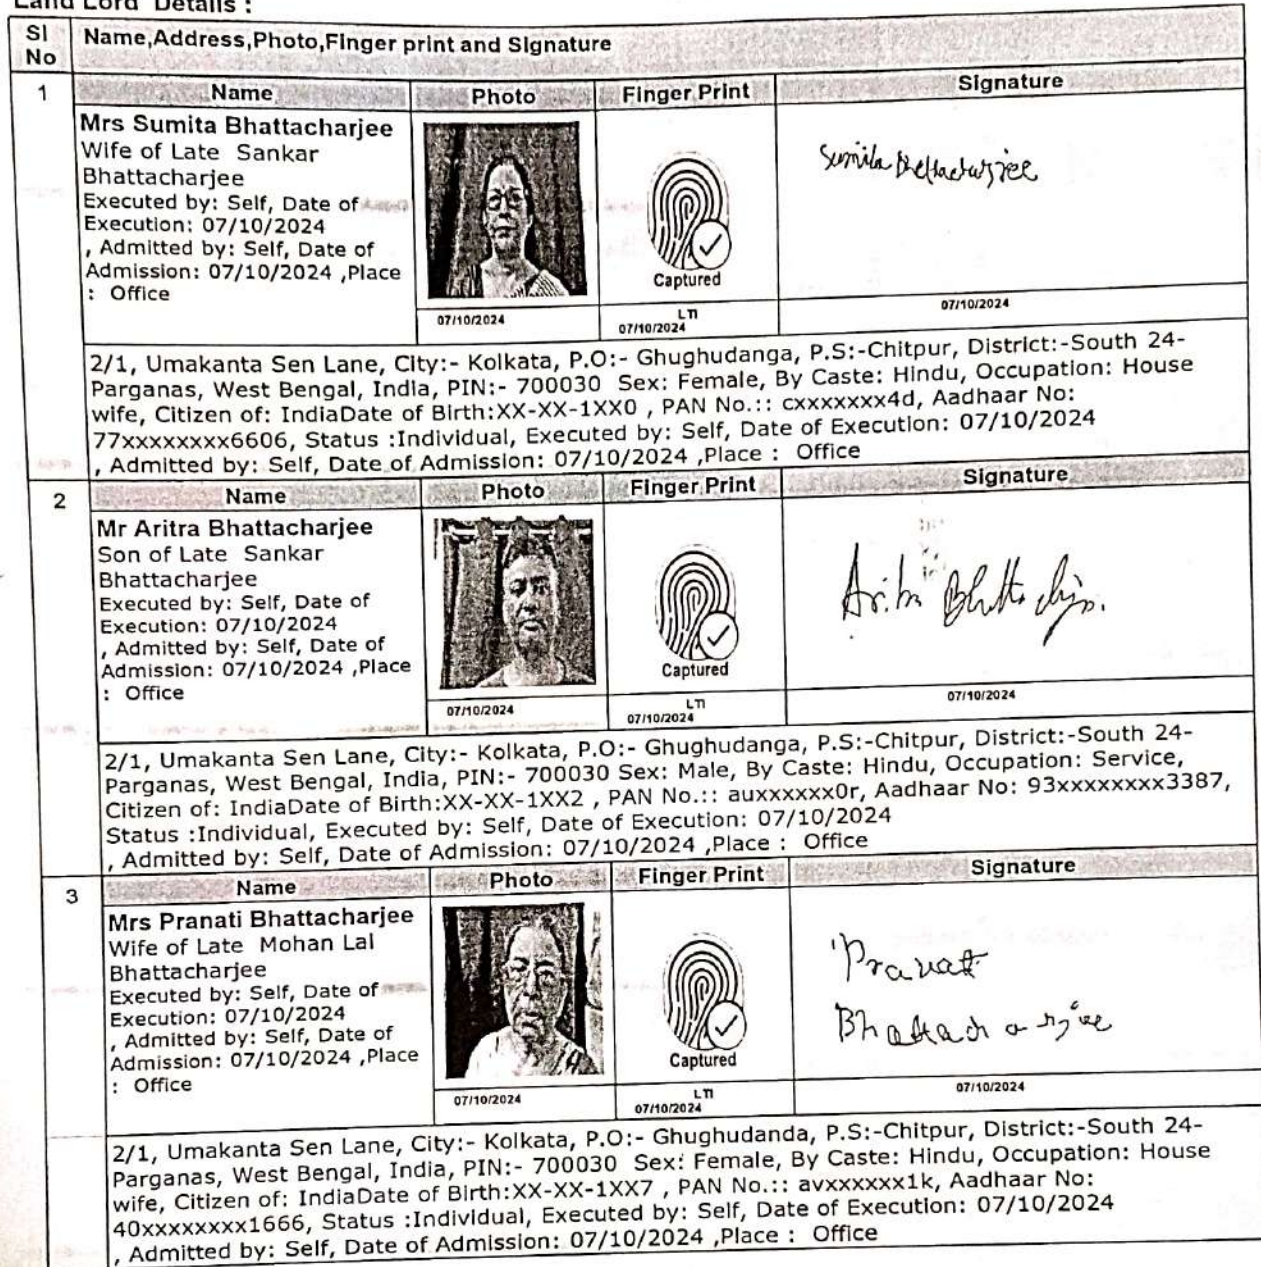 Land Lord Details :
Sl No Name,Address,Photo,Finger print and Signature
1 Name Photo Finger Print Signature
Mrs Sumita Bhattacharjee
Wife of Late Sankar
Bhattacharjee
Executed by: Self, Date of
Execution: 07/10/2024
, Admitted by: Self, Date of
Admission: 07/10/2024 ,Place
: Office
Captured
Sumita Bhattacharjee
07/10/2024
LTI
07/10/2024
07/10/2024
2/1, Umakanta Sen Lane, City:- Kolkata, P.O:- Ghughudanga, P.S:-Chitpur, District:-South 24-
Parganas, West Bengal, India, PIN:- 700030 Sex: Female, By Caste: Hindu, Occupation: House
wife, Citizen of: IndiaDate of Birth:XX-XX-1XX0 , PAN No.:: cxxxxxxx4d, Aadhaar No:
77xxxxxxxx6606, Status :Individual, Executed by: Self, Date of Execution: 07/10/2024
, Admitted by: Self, Date of Admission: 07/10/2024 ,Place : Office
2 Name Photo Finger Print Signature
Mr Aritra Bhattacharjee
Son of Late Sankar
Bhattacharjee
Executed by: Self, Date of
Execution: 07/10/2024
, Admitted by: Self, Date of
Admission: 07/10/2024 ,Place
: Office
Captured
07/10/2024
LTI
07/10/2024
07/10/2024
2/1, Umakanta Sen Lane, City:- Kolkata, P.O:- Ghughudanga, P.S:-Chitpur, District:-South 24-
Parganas, West Bengal, India, PIN:- 700030 Sex: Male, By Caste: Hindu, Occupation: Service,
Citizen of: IndiaDate of Birth:XX-XX-1XX2 , PAN No.:: auxxxxxx0r, Aadhaar No: 93xxxxxxxx3387,
Status :Individual, Executed by: Self, Date of Execution: 07/10/2024
, Admitted by: Self, Date of Admission: 07/10/2024 ,Place : Office
3 Name Photo Finger Print Signature
Mrs Pranati Bhattacharjee
Wife of Late Mohan Lal
Bhattacharjee
Executed by: Self, Date of
Execution: 07/10/2024
, Admitted by: Self, Date of
Admission: 07/10/2024 ,Place
: Office
Captured
Pranati
Bhattacharjee
07/10/2024
LTI
07/10/2024
07/10/2024
2/1, Umakanta Sen Lane, City:- Kolkata, P.O:- Ghughudanda, P.S:-Chitpur, District:-South 24-
Parganas, West Bengal, India, PIN:- 700030 Sex: Female, By Caste: Hindu, Occupation: House
wife, Citizen of: IndiaDate of Birth:XX-XX-1XX7 , PAN No.:: avxxxxxx1k, Aadhaar No:
40xxxxxxxx1666, Status :Individual, Executed by: Self, Date of Execution: 07/10/2024
, Admitted by: Self, Date of Admission: 07/10/2024 ,Place : Office